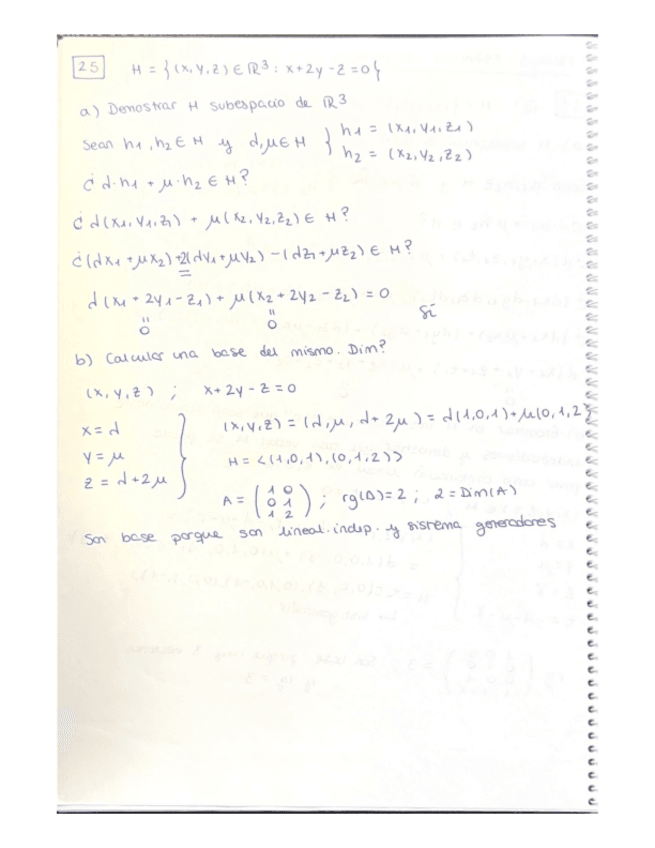 25 H = { (x, y, z) ∈ ℝ³ : x + 2y - z = 0 }
a) Demostrar H subespacio de ℝ³
Sean h₁, h₂ ∈ H y λ, μ ∈ H } h₁ = (x₁, y₁, z₁)
h₂ = (x₂, y₂, z₂)
¿ λ·h₁ + μ·h₂ ∈ H?
¿ λ(x₁, y₁, z₁) + μ(x₂, y₂, z₂) ∈ H?
¿(λx₁ + μx₂) + 2(λy₁ + μy₂) - (λz₁ + μz₂) ∈ H?
λ(x₁ + 2y₁ - z₁) + μ(x₂ + 2y₂ - z₂) = 0
" " Sí
0 0
b) Calcular una base del mismo. Dim?
(x, y, z) ; x + 2y - z = 0
x = λ
y = μ
z = λ + 2μ
(x, y, z) = (λ, μ, λ + 2μ) = λ(1, 0, 1) + μ(0, 1, 2)
H = <(1, 0, 1), (0, 1, 2)>
A = ( 1 0
0 1
1 2 ) ; rg(A) = 2 ; 2 = Dim(A)
Son base porque son lineal. indep. y sistema generadores